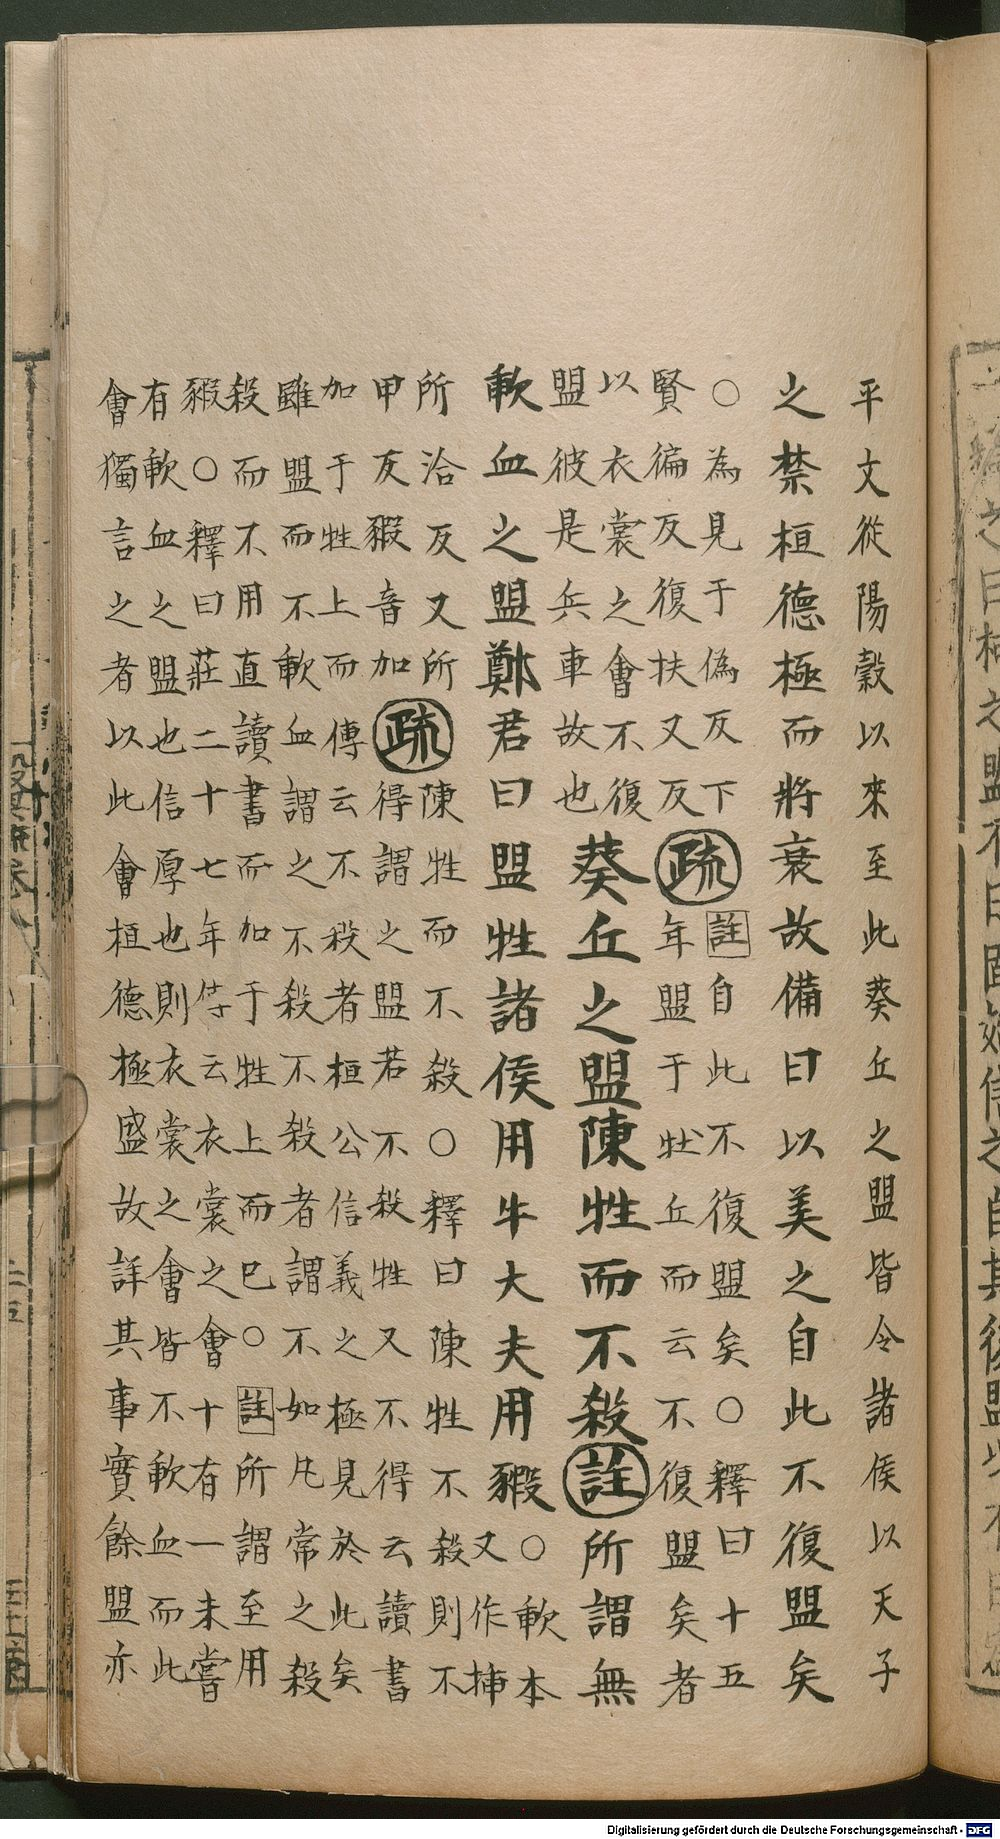 平文從陽穀以來至此葵丘之盟皆令諸侯以天子
之禁桓德極而將衰故備曰以美之自此不復盟矣
○為見于偽反下
賢徧反復扶又反
疏
註自此不復盟矣○釋曰十五
年盟于牡丘而云不復盟矣者
以衣裳之會不復
盟彼是兵車故也
葵丘之盟陳牲而不殺註所謂無
歃血之盟鄭君曰盟牲諸侯用牛大夫用豭
○歃本
又作插
所洽反又所
甲反豭音加
疏
陳牲而不殺○釋曰陳牲不殺則不
得謂之盟若不殺牲又不得云讀書
加于牲上而傳云不殺者桓公信義之極見於此矣
雖盟而不歃血謂之不殺不殺者謂不如凡常之殺
殺而不用直讀書而加于牲上而已○註所謂至用
豭○釋曰莊二十七年傳云衣裳之會十有一未嘗
有歃血之盟也信厚也則衣裳之會皆不歃血而此
會獨言之者以此會桓德極盛故詳其事實餘盟亦
Digitalisierung gefördert durch die Deutsche Forschungsgemeinschaft - DFG